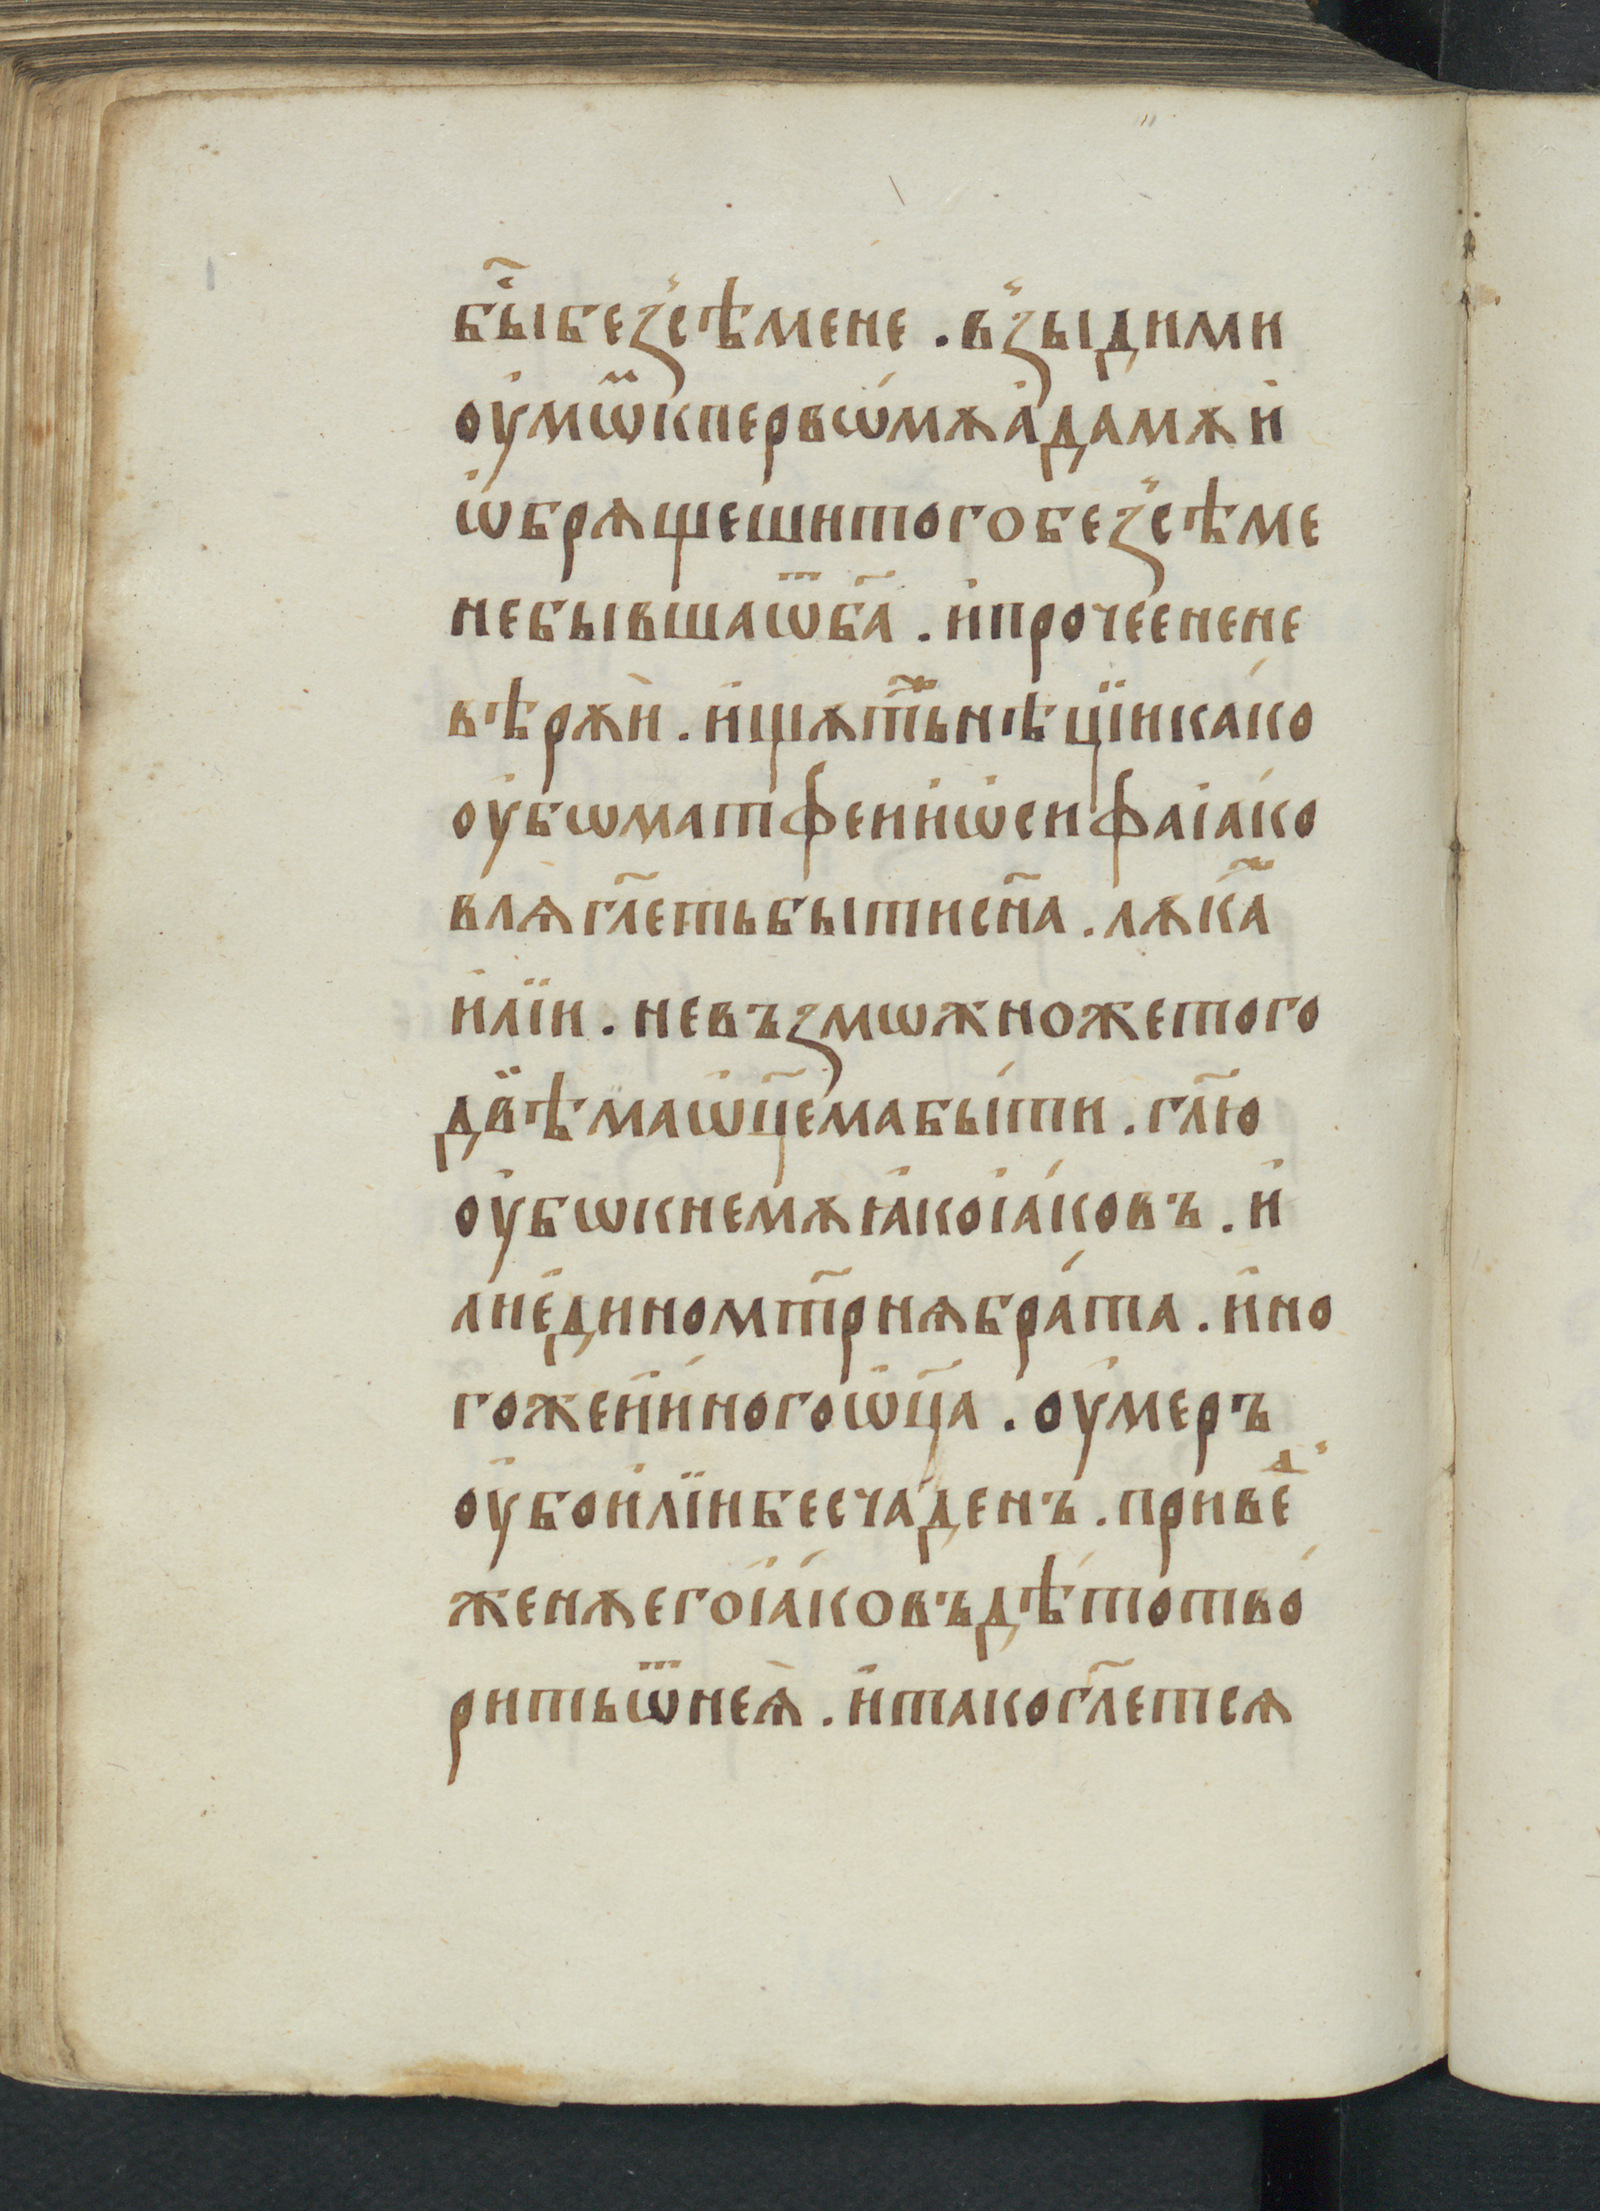 бы̑ без̾сѣмене . в̾зыди ми
оу҆мѡ̈ к первѡ́мѫ а҆дамѫ и҆
ѡ҆брѧщеши того без̾сѣме
не бывша ѿ б҃а . и҆ прочее не не
вѣрѫи̑ . и҆щѫт̾ нѣцїи како
оу҆бѡ матфеи и҆ѡсифа іа҆ко
влѧ гл҃еть быти сн҃а . лѫка҃
и҆лїи . невъзмѡжно же того
двѣ̈ма ѡ҆ц҃ема бы́ти . гл҃ю
оу҆бѡ к немѫ ꙗ҆ко іа҆ковъ . и҆
ли е҆диномт҃рнѧ бра́та . и҆но
го же и҆ и҆ного ѡ҆ц҃а . оу҆меръ
оу҆бо и҆лїи бесчаденъ . привеⷣ
женѫ его іа҆ковъ дѣ́то тво́
рить ѿ неѧ̀ . и҆ тако гл҃етсѧ